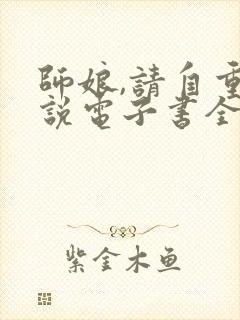 師娘,請自重
說電子書全
紫金木鱼